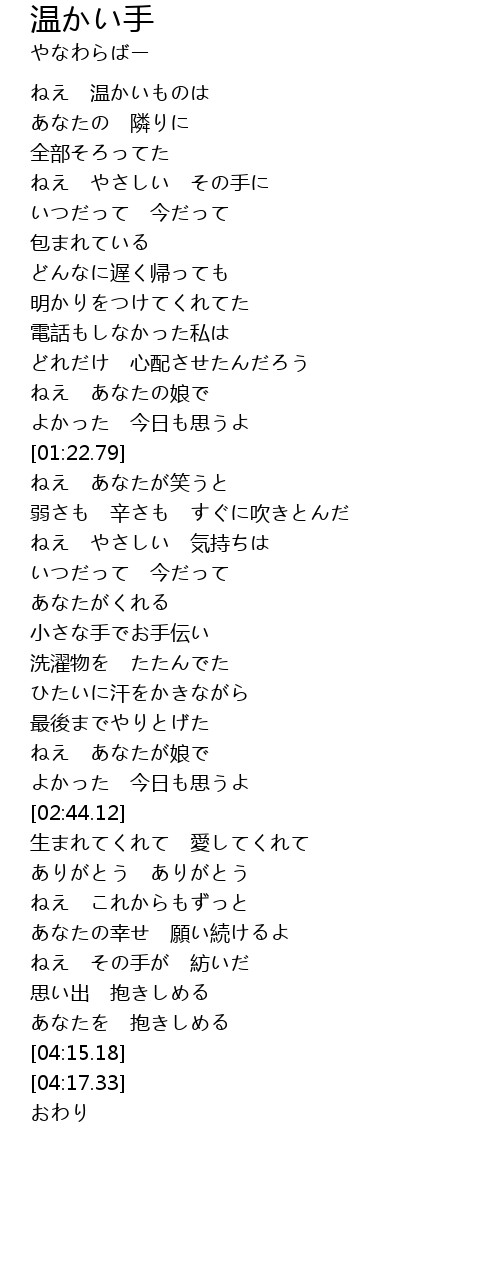 温かい手
やなわらばー
ねえ　温かいものは
あなたの　隣りに
全部そろってた
ねえ　やさしい　その手に
いつだって　今だって
包まれている
どんなに遅く帰っても
明かりをつけてくれてた
電話もしなかった私は
どれだけ　心配させたんだろう
ねえ　あなたの娘で
よかった　今日も思うよ
[01:22.79]
ねえ　あなたが笑うと
弱さも　辛さも　すぐに吹きとんだ
ねえ　やさしい　気持ちは
いつだって　今だって
あなたがくれる
小さな手でお手伝い
洗濯物を　たたんでた
ひたいに汗をかきながら
最後までやりとげた
ねえ　あなたが娘で
よかった　今日も思うよ
[02:44.12]
生まれてくれて　愛してくれて
ありがとう　ありがとう
ねえ　これからもずっと
あなたの幸せ　願い続けるよ
ねえ　その手が　紡いだ
思い出　抱きしめる
あなたを　抱きしめる
[04:15.18]
[04:17.33]
おわり